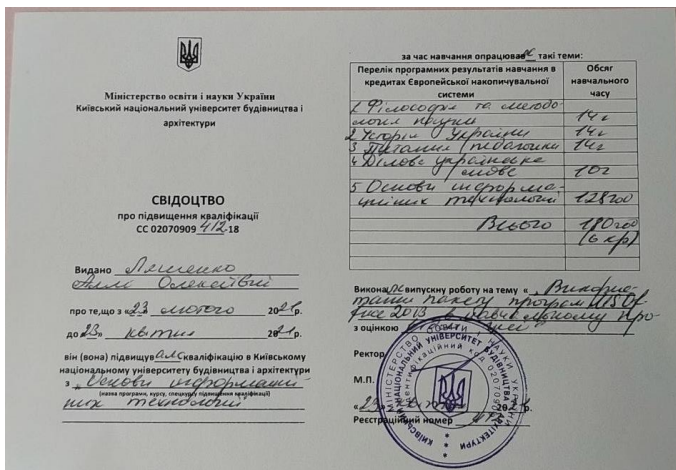 Міністерство освіти і науки України
Київський національний університет будівництва і
архітектури
СВІДОЦТВО
про підвищення кваліфікації
СС 02070909 412-18
Видано Ляшенко
Аллі Олексіївій
про те,що з «23» лютого 2021р.
до «23» квітня 2021р.
він (вона) підвищувала кваліфікацію в Київському
національному університеті будівництва і архітектури
з „Основи інформацій-
(назва програми, курсу, спецкурсу підвищення кваліфікації)
них технологій"
за час навчання опрацював такі теми:
Перелік програмних результатів навчання в
кредитах Європейської накопичувальної
системи
Обсяг
навчального
часу
1 Філософія та методо-
логія науки 14г
2 Історія України 14г
3 Питання педагогіки 14г
4 Ділова українська
мова 10г
5 Основи інформа-
ційних технологій 128год
Всього 180год
(6 кр)
Виконала випускну роботу на тему « Викорис-
тання пакету програм MS Of-
fice 2013 в навчальному про-
з оцінкою
Ректор
М.П.
«23» 2021р.
Реєстраційний номер
МІНІСТЕРСТВО ОСВІТИ І НАУКИ УКРАЇНИ
КИЇВСЬКИЙ НАЦІОНАЛЬНИЙ УНІВЕРСИТЕТ БУДІВНИЦТВА І АРХІТЕКТУРИ
ідентифікаційний код 02070909